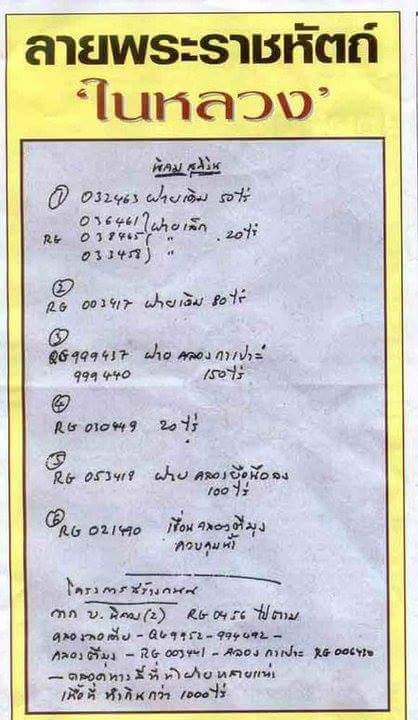 ลายพระราชหัตถ์
'ในหลวง'
นิคม
① 032463 ฝายเดิม 50 ไร่
036461 ฝายเล็ก
RG 038465 " 20 ไร่
033458 "
②
RG 003417 ฝายเดิม 80 ไร่
③
QG 999437 ฝาย คลอง กาเปาะ
999440 150 ไร่
④
RG 030449 20 ไร่
⑤
RG 053419 ฝาย คลอง
100 ไร่
⑥
RG 021490 เขื่อน คลองตีมุง
ควบคุมน้ำ
โครงการสร้างถนน
จาก บ. นิคม (2) RG 0456 ไปตาม
คลอง – QG 9952 – 994492 –
คลองตีมุง – RG 003441 – คลอง กาเปาะ RG 006430
– ตลอดทางนี้ที่ทำฝายหลายแห่ง
เนื้อที่ ทำกินกว่า 1000 ไร่